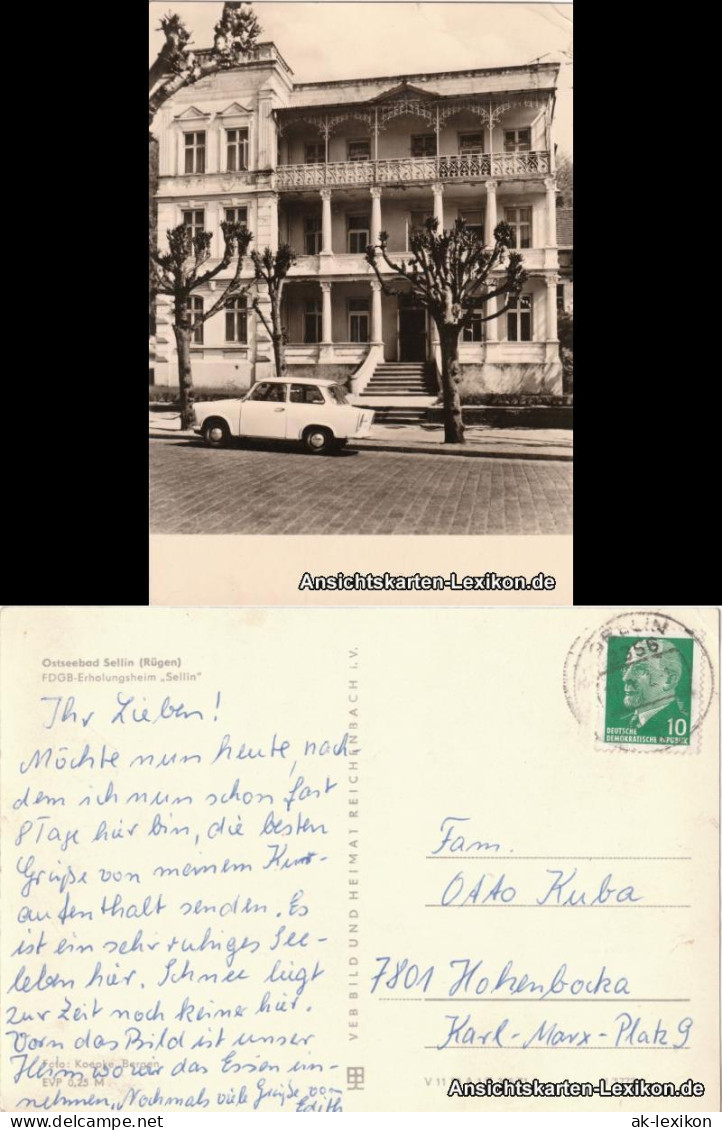 Ansichtskarten-Lexikon.de
Ostseebad Sellin (Rügen)
FDGB-Erholungsheim „Sellin"
Ihr Lieben!
Möchte nun heute, nach
dem ich nun schon fast
8 Tage hier bin, die besten
Grüße von meinem Kur-
aufenthalt senden. Es
ist ein sehr ruhiges See-
leben hier. Schnee liegt
zur Zeit noch keiner hier.
Vorn das Bild ist unser
Heim wo wir das Essen ein-
nehmen. Nochmals viele Grüße von
Edith
Foto: Koepke, Bergen
EVP 0,25 M
VEB BILD UND HEIMAT REICHENBACH i. V.
SELLIN
2356
10
DEUTSCHE
DEMOKRATISCHE REPUBLIK
Fam.
Otto Kuba
7801 Hohenbocka
Karl-Marx-Platz 9
V 11
Ansichtskarten-Lexikon.de
ak-lexikon